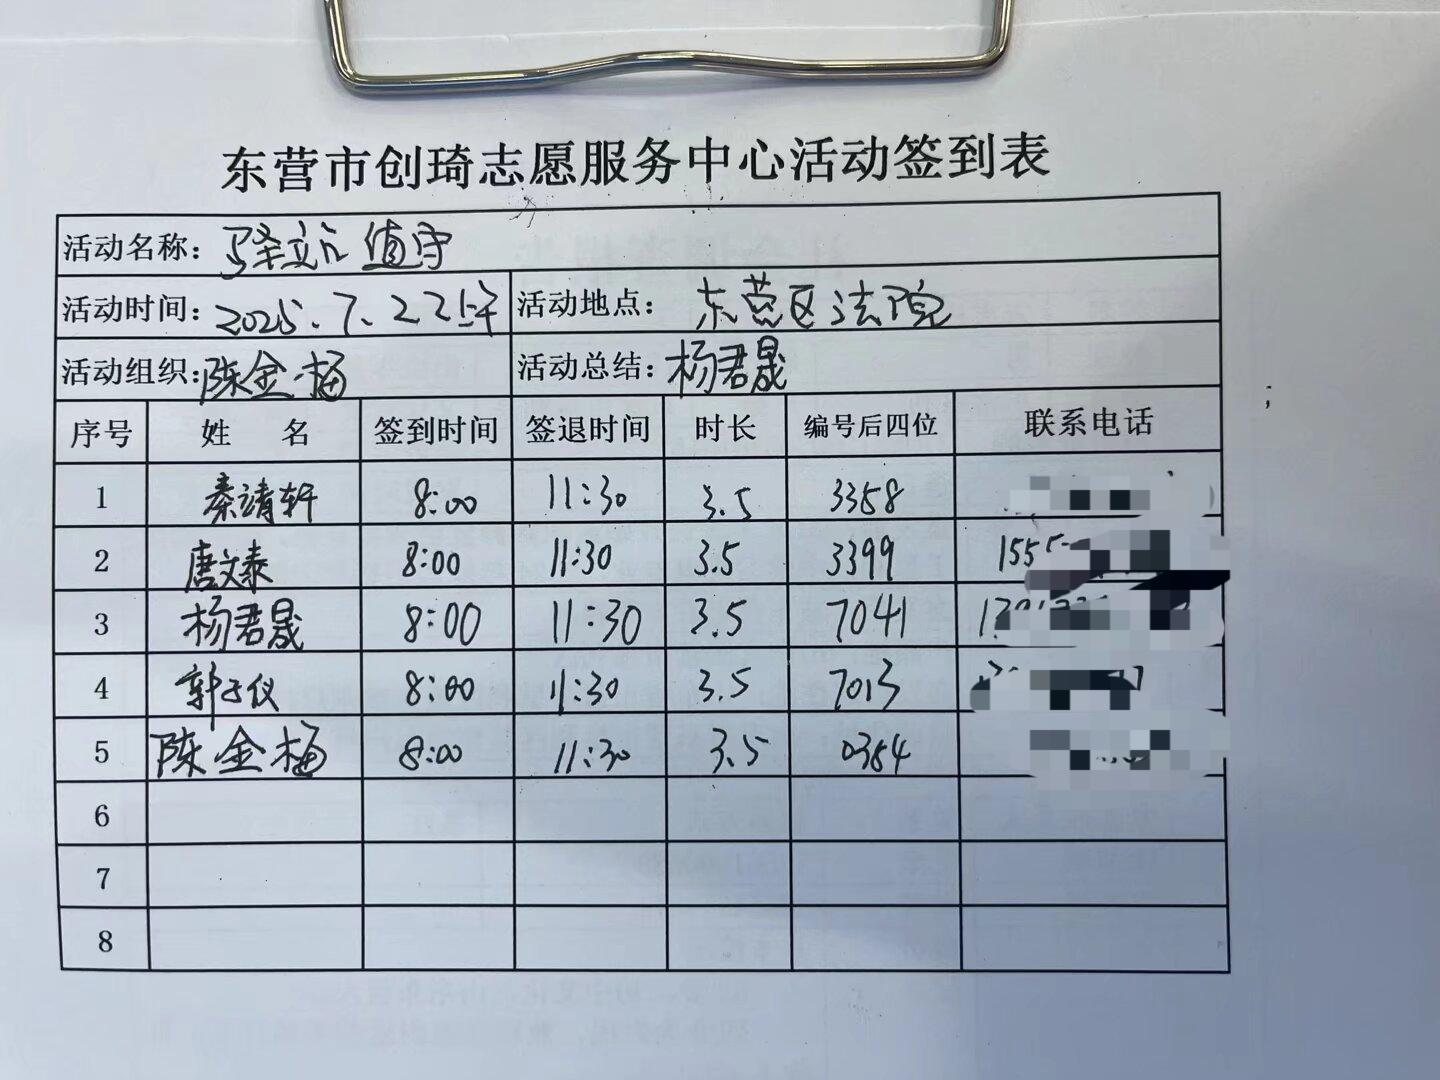 东营市创琦志愿服务中心活动签到表
活动名称: 驿站值守
活动时间: 2025.7.22上午 活动地点: 东营区法院
活动组织: 陈金梅 活动总结: 杨君晟
序号 姓名 签到时间 签退时间 时长 编号后四位 联系电话
1 秦靖轩 8:00 11:30 3.5 3358
2 唐文泰 8:00 11:30 3.5 3399 155
3 杨君晟 8:00 11:30 3.5 7041
4 郭子仪 8:00 11:30 3.5 7013
5 陈金梅 8:00 11:30 3.5 0364
6
7
8